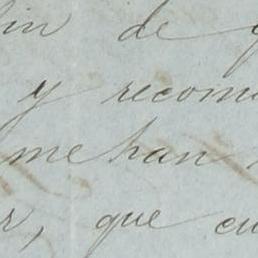 fin de
y recom
me han
r, que cu